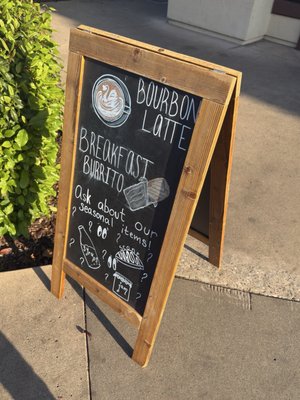 BOURBON
LATTE
BREAKFAST
BURRITO
Ask about our
seasonal items!